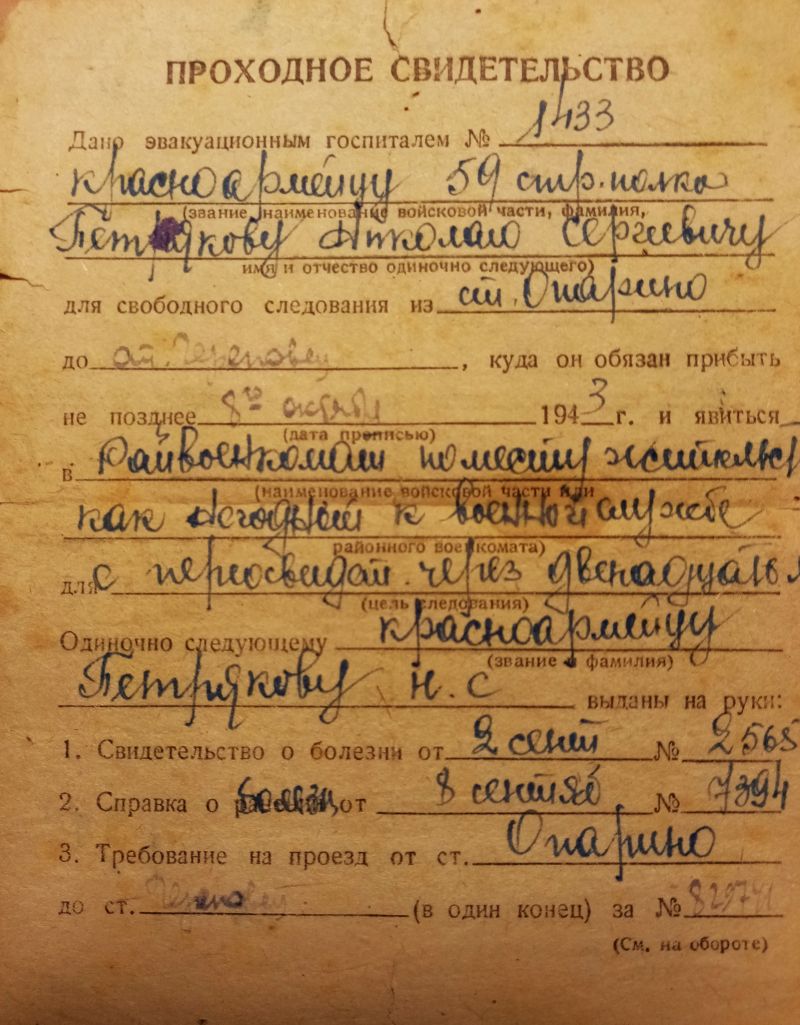 ПРОХОДНОЕ СВИДЕТЕЛЬСТВО
Дано эвакуационным госпиталем № 1433
красноармейцу 59 стр. полка
(звание, наименование войсковой части, фамилия,
Петрякову Николаю Сергеевичу
имя и отчество одиночно следующего)
для свободного следования из ст. Опарино
до ст. Череповец, куда он обязан прибыть
не позднее 8го октября 1943 г. и явиться
(дата прописью)
в Райвоенкомат по месту жительст
(наименование войсковой части или
как негодный к военной службе
районного военкомата)
для с переосвидет. через двенадцать
(цель следования)
Одиночно следующему красноармейцу
(звание и фамилия)
Петрякову Н. С выданы на руки:
1. Свидетельство о болезни от 2 сент № 2565
2. Справка о от 8 сентяб. № 7394
3. Требование на проезд от ст. Опарино
до ст. Череповец (в один конец) за №
(См. на обороте)